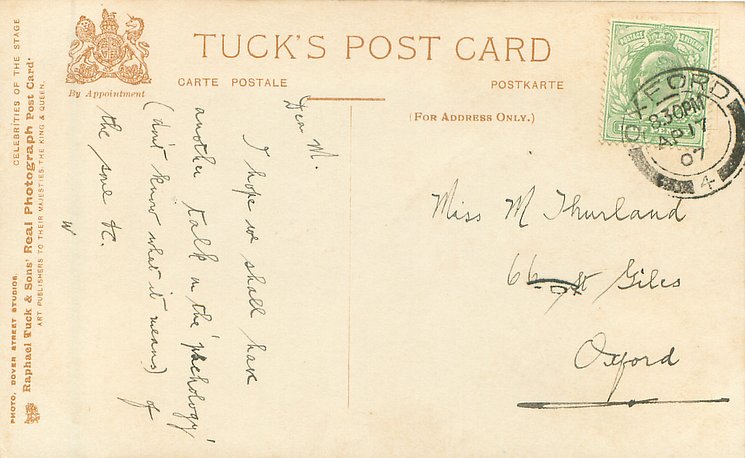 TUCK'S POST CARD
CARTE POSTALE
POSTKARTE
By Appointment
(FOR ADDRESS ONLY.)
CELEBRITIES OF THE STAGE
Raphael Tuck & Sons' Real Photograph Post Card.
ART PUBLISHERS TO THEIR MAJESTIES THE KING & QUEEN.
PHOTO, DOVER STREET STUDIOS.
POSTAGE
OXFORD
8.30PM
AP 17
07
4
Dear M.
I hope we shall have
another talk on the 'phchology'
(don't know what it means) of
the same &c.
W
Miss M Thurland
66 St Giles
Oxford